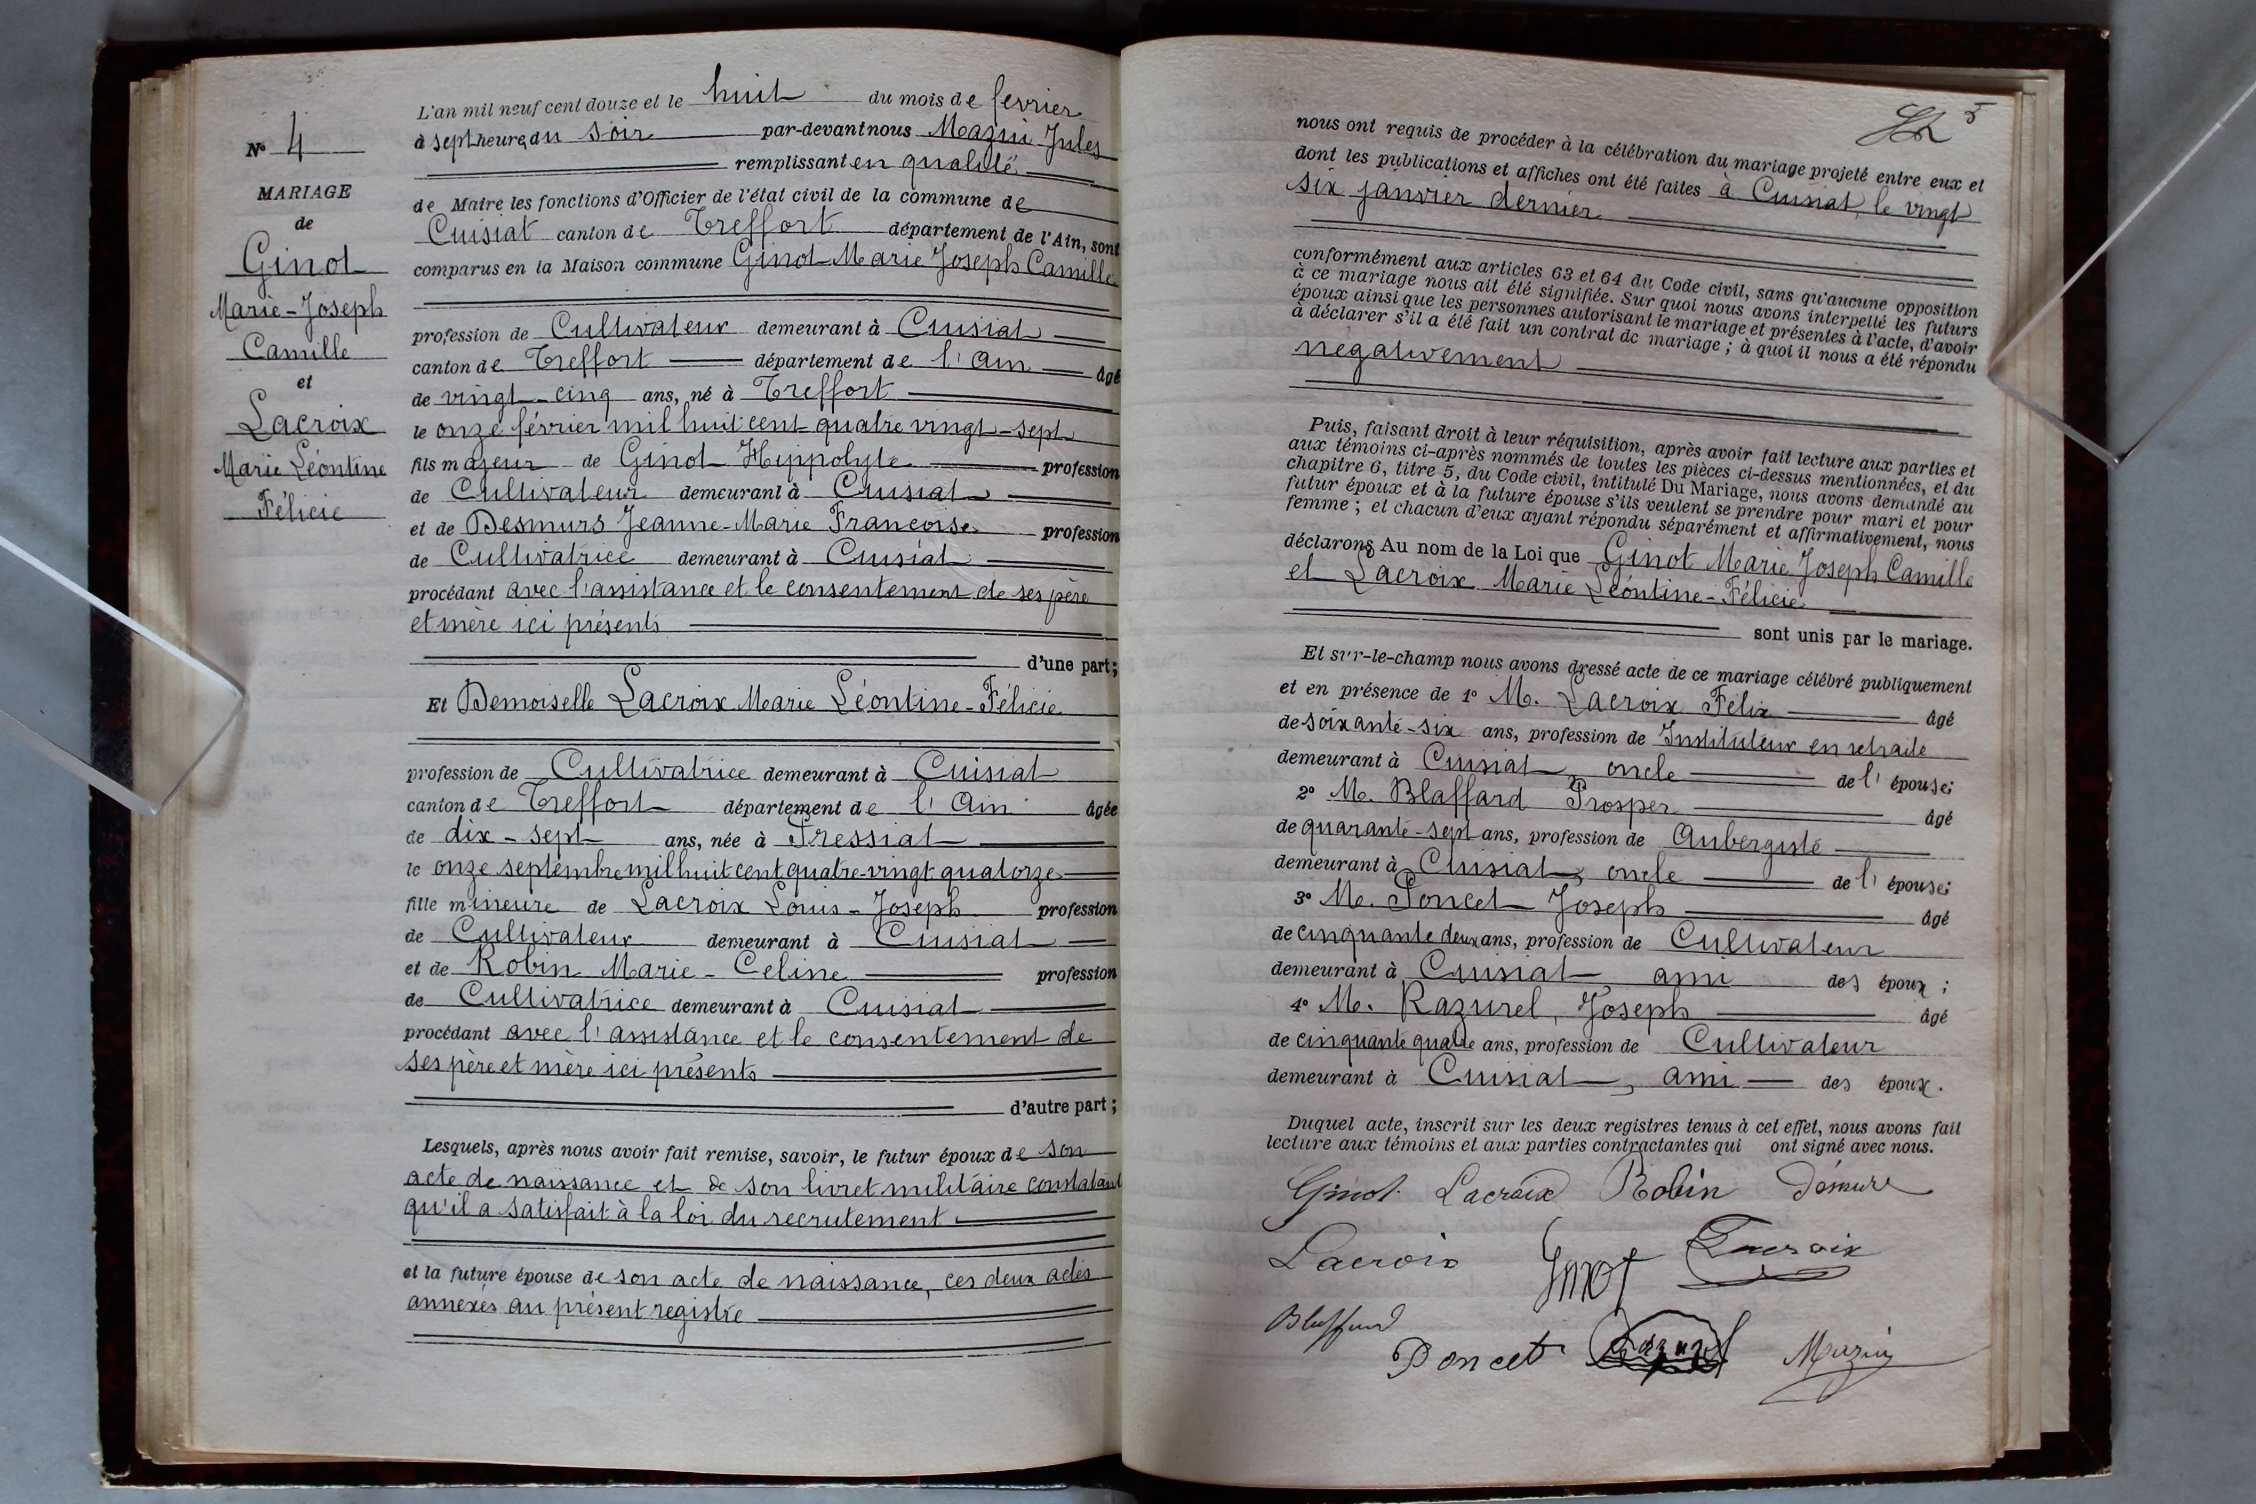 N° 4
MARIAGE
de
Ginot
Marie-Joseph
Camille
et
Lacroix
Marie Léontine
Félicie
L'an mil neuf cent douze et le huit du mois de fevrier
à sept heures du soir par-devant nous Mazui Jules
remplissant en qualité
de Maire les fonctions d'Officier de l'état civil de la commune de
Cuisiat canton de Treffort département de l'Ain, sont
comparus en la Maison commune Ginot Marie Joseph Camille
profession de Cultivateur demeurant à Cuisiat
canton de Treffort département de l'Ain âgé
de vingt-cinq ans, né à Treffort
le onze février mil huit cent quatre vingt-sept
fils majeur de Ginot Hyppolyte profession
de Cultivateur demeurant à Cuisiat
et de Desmurs Jeanne-Marie Françoise profession
de Cultivatrice demeurant à Cuisiat
procédant avec l'assistance et le consentement de ses père
et mère ici présents
d'une part;
Et Demoiselle Lacroix Marie Léontine-Félicie
profession de Cultivatrice demeurant à Cuisiat
canton de Treffort département de l'Ain âgée
de dix-sept ans, née à Pressiat
le onze septembre mil huit cent quatre-vingt quatorze
fille mineure de Lacroix Louis-Joseph profession
de Cultivateur demeurant à Cuisiat
et de Robin Marie-Celine profession
de Cultivatrice demeurant à Cuisiat
procédant avec l'assistance et le consentement de
ses père et mère ici présents
d'autre part;
Lesquels, après nous avoir fait remise, savoir, le futur époux de son
acte de naissance et de son livret militaire constatant
qu'il a satisfait à la loi du recrutement
et la future épouse de son acte de naissance, ces deux actes
annexés au présent registre
5
nous ont requis de procéder à la célébration du mariage projeté entre eux et
dont les publications et affiches ont été faites à Cuisiat, le vingt
six janvier dernier
conformément aux articles 63 et 64 du Code civil, sans qu'aucune opposition
à ce mariage nous ait été signifiée. Sur quoi nous avons interpellé les futurs
époux ainsi que les personnes autorisant le mariage et présentes à l'acte, d'avoir
à déclarer s'il a été fait un contrat de mariage; à quoi il nous a été répondu
negativement
Puis, faisant droit à leur réquisition, après avoir fait lecture aux parties et
aux témoins ci-après nommés de toutes les pièces ci-dessus mentionnées, et du
chapitre 6, titre 5, du Code civil, intitulé Du Mariage, nous avons demandé au
futur époux et à la future épouse s'ils veulent se prendre pour mari et pour
femme; et chacun d'eux ayant répondu séparément et affirmativement, nous
déclarons Au nom de la Loi que Ginot Marie Joseph Camille
et Lacroix Marie Léontine-Félicie
sont unis par le mariage.
Et sur-le-champ nous avons dressé acte de ce mariage célébré publiquement
et en présence de 1° M. Lacroix Félix âgé
de soixante-six ans, profession de Instituteur en retraite
demeurant à Cuisiat, oncle de l'épouse;
2° M. Blaffard Prosper âgé
de quarante-sept ans, profession de Aubergiste
demeurant à Cuisiat, oncle de l'épouse;
3° M. Poncet Joseph âgé
de cinquante deux ans, profession de Cultivateur
demeurant à Cuisiat, ami des époux;
4° M. Razurel, Joseph âgé
de cinquante quatre ans, profession de Cultivateur
demeurant à Cuisiat, ami des époux.
Duquel acte, inscrit sur les deux registres tenus à cet effet, nous avons fait
lecture aux témoins et aux parties contractantes qui ont signé avec nous.
Ginot Lacroix Robin Démurs
Lacroix Ginot Lacroix
Blaffard
Poncet Razurel Mazui